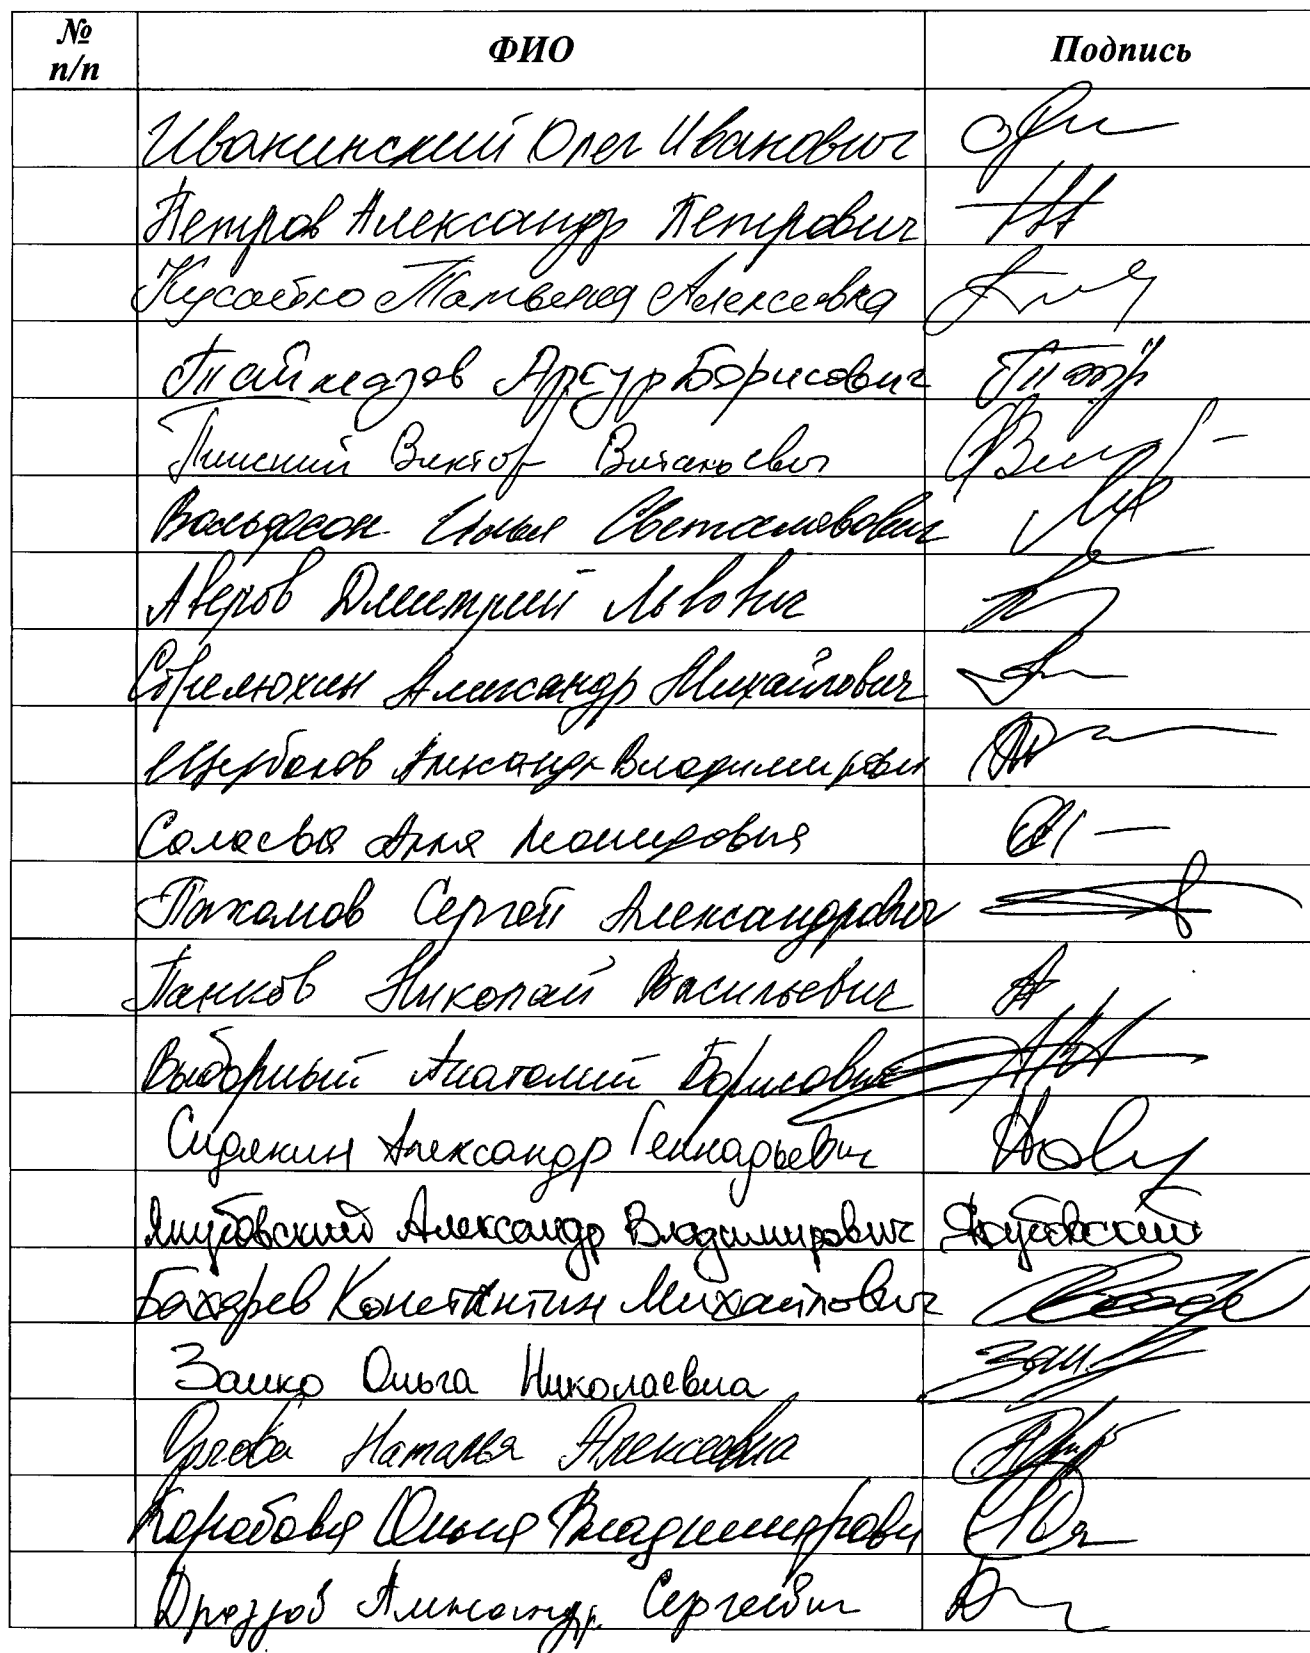 № п/п ФИО Подпись
Иванинский Олег Иванович
Петров Александр Петрович
Кусайко Татьяна Алексеевна
Таймазов Артур Борисович
Пинский Виктор Витальевич
Вольфсон Илья Светославович
Аверов Дмитрий Львович
Стрелюхин Александр Михайлович
Щербаков Александр Владимирович
Соловьева Анна Леонидовна
Пахомов Сергей Александрович
Панков Николай Васильевич
Выборный Анатолий Борисович
Сидякин Александр Геннадьевич
Якубовский Александр Владимирович Якубовский
Бахарев Константин Михайлович
Занко Ольга Николаевна
Орлова Наталья Алексеевна
Коробова Ольга Владимировн
Дроздов Александр Сергеевич